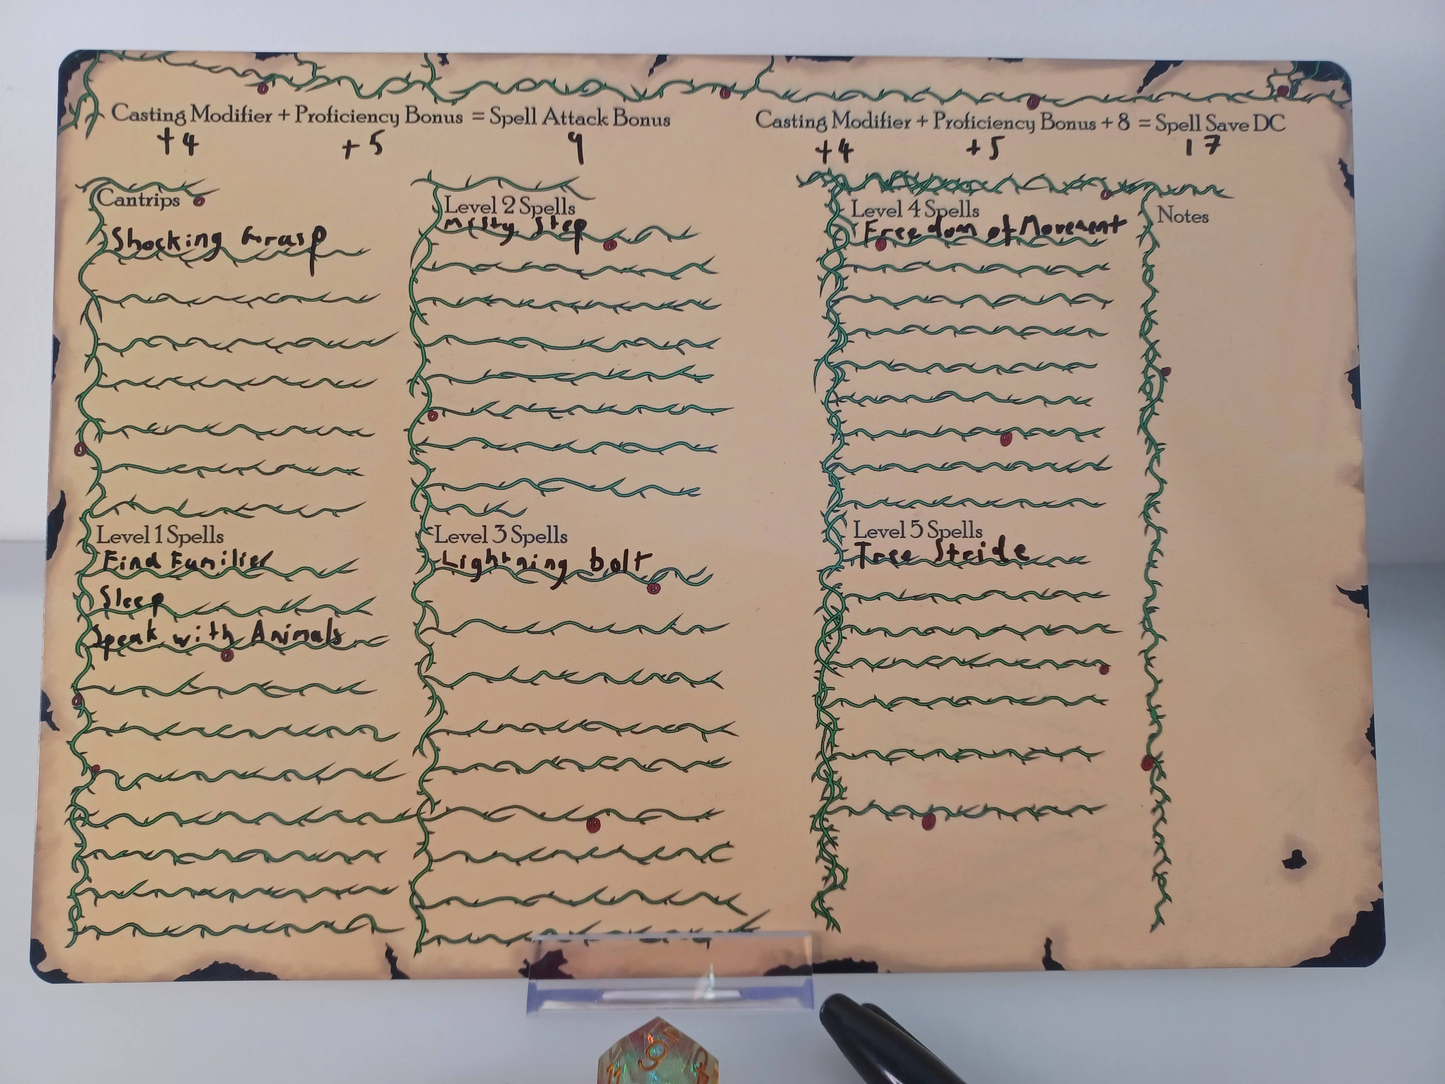 Casting Modifier + Proficiency Bonus = Spell Attack Bonus
+4 +5 9
Casting Modifier + Proficiency Bonus + 8 = Spell Save DC
+4 +5 17
Cantrips
Shocking Grasp
Level 1 Spells
Find Familier
Sleep
Speak with Animals
Level 2 Spells
Misty Step
Level 3 Spells
Lightning bolt
Level 4 Spells
Freedom of Movement
Level 5 Spells
Tree Stride
Notes
9